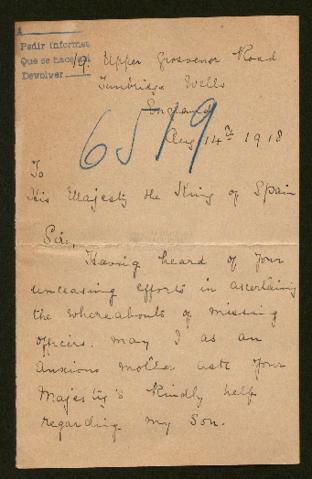 A
Pedir informes
Que se hace así
Devolver
19. Upper Grosvenor Road
Tunbridge Wells
England
6519
Aug 14th 1918
To
His Majesty the King of Spain
Sir,
Having heard of your
unceasing efforts in ascertaining
the whereabouts of missing
officers. may I as an
Anxious mother ask Your
Majesty's kindly help
regarding my son.